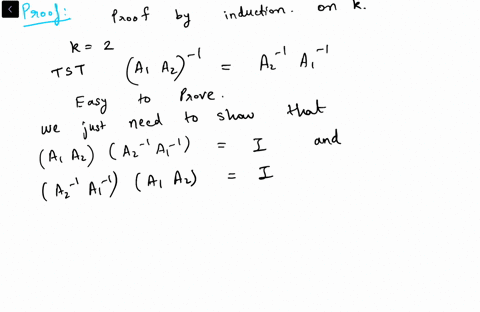 Proof: Proof by induction. on k.
k = 2
TST (A₁ A₂)⁻¹ = A₂⁻¹ A₁⁻¹
Easy to Prove.
we just need to show that
(A₁ A₂) (A₂⁻¹ A₁⁻¹) = I and
(A₂⁻¹ A₁⁻¹) (A₁ A₂) = I